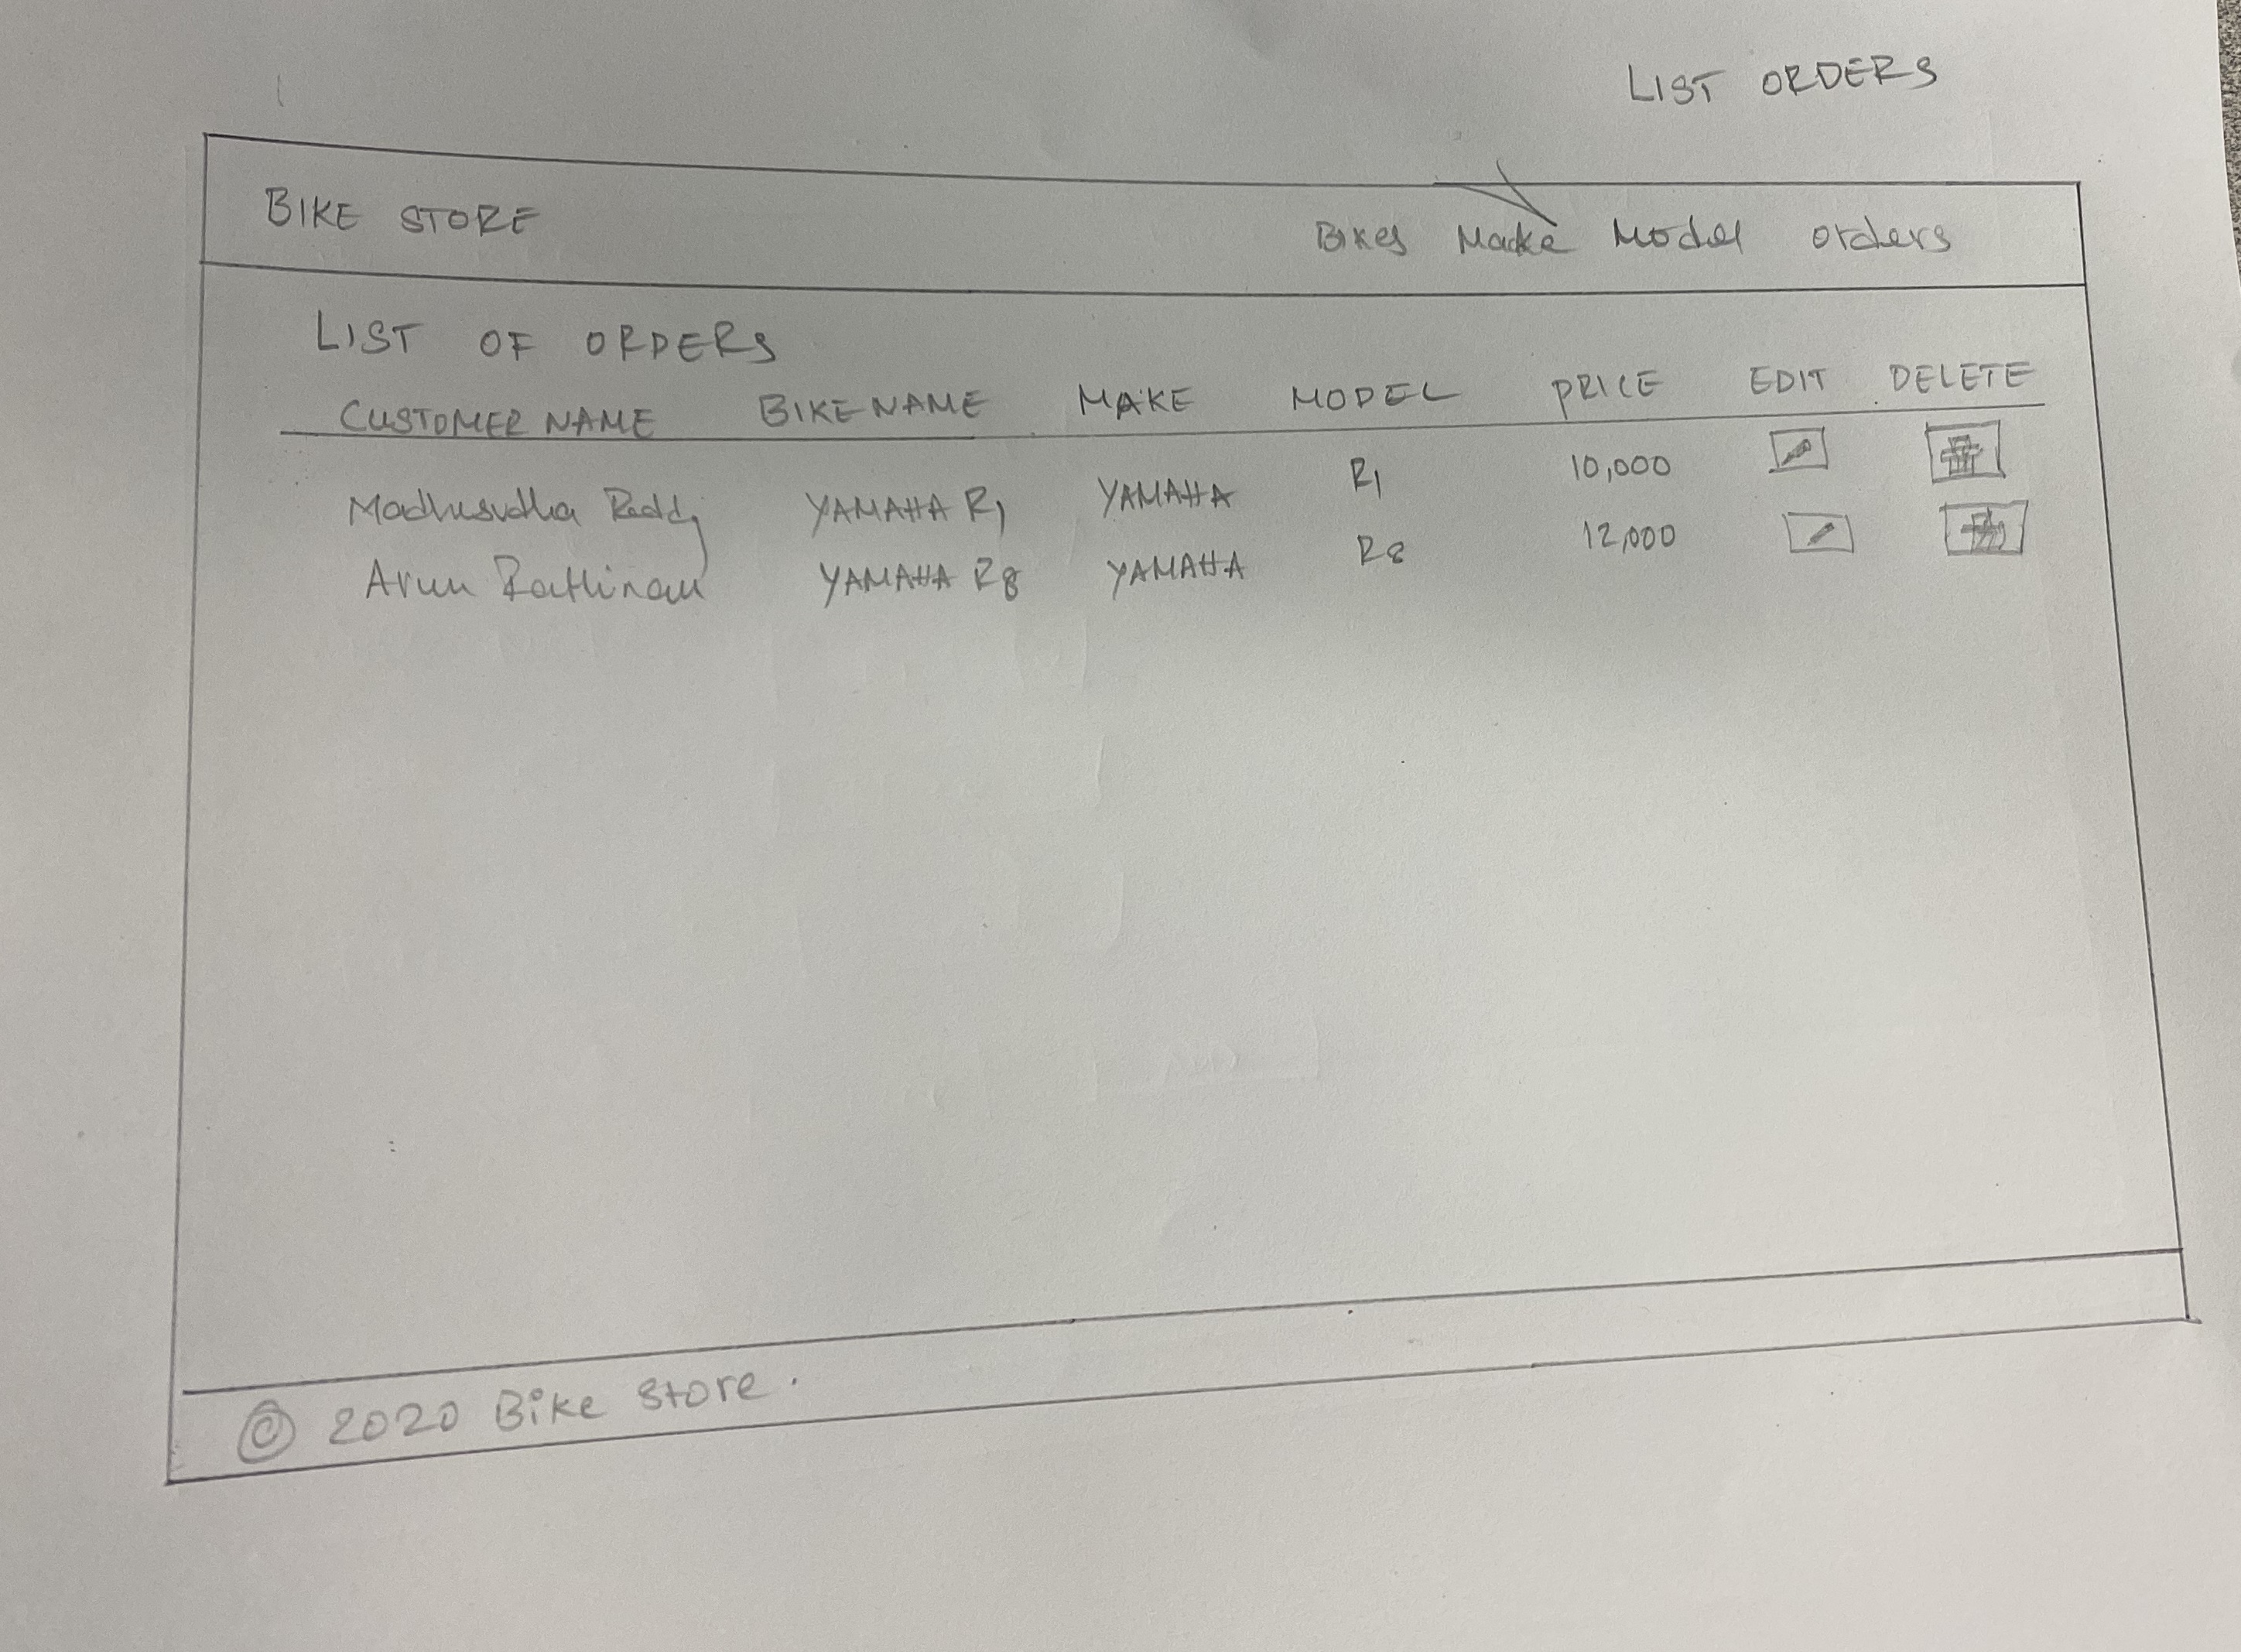 LIST ORDERS
BIKE STORE Bikes Make Model orders
LIST OF ORDERS
CUSTOMER NAME BIKE NAME MAKE MODEL PRICE EDIT DELETE
Madhusudha Reddy YAMAHA R1 YAMAHA R1 10,000
Arun Rathinam YAMAHA R8 YAMAHA R8 12,000
© 2020 Bike Store.